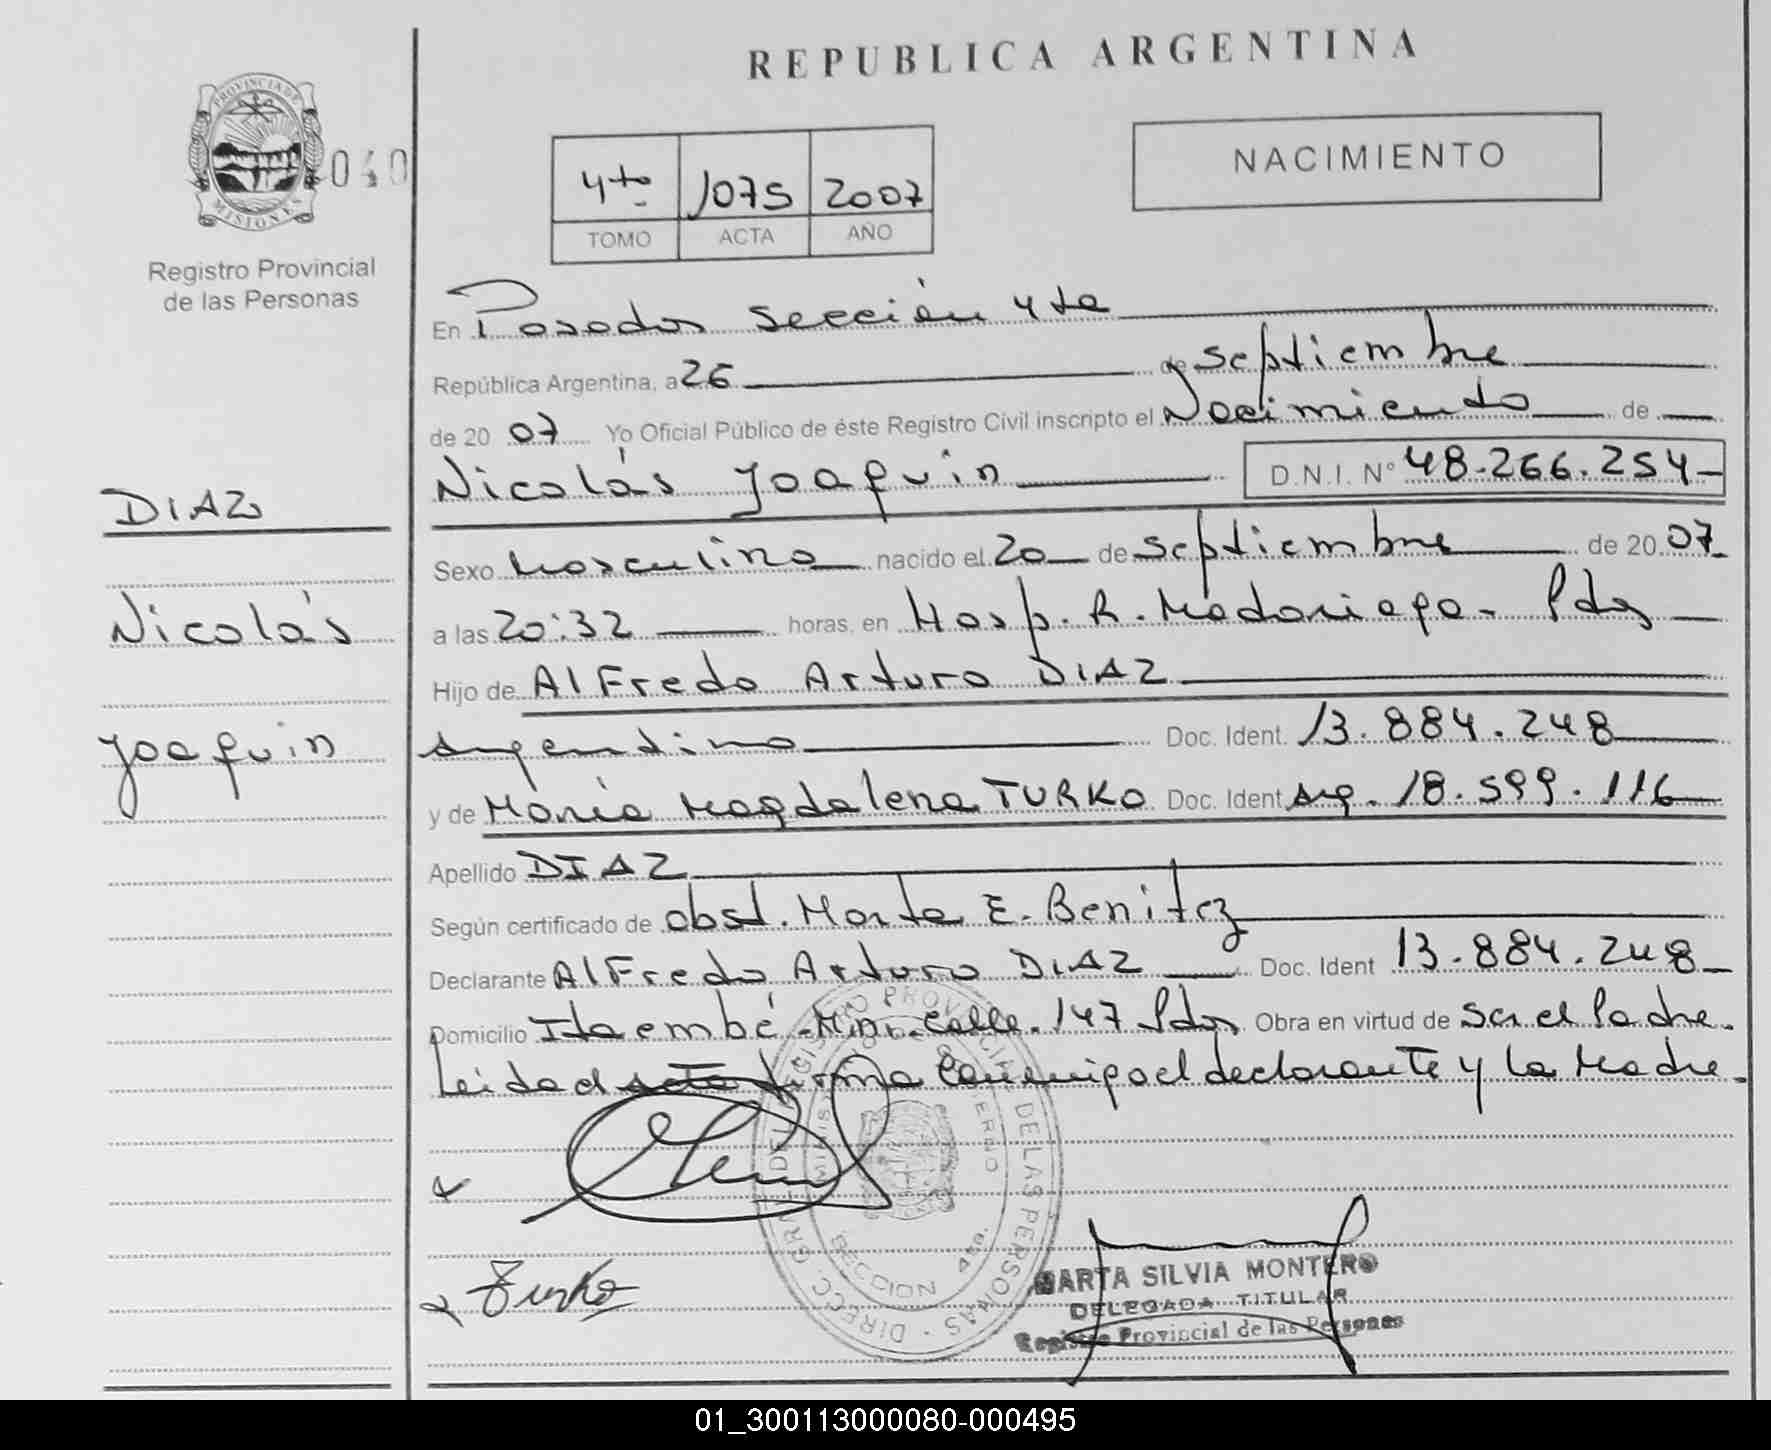 REPUBLICA ARGENTINA
PROVINCIA DE
MISIONES
040
Registro Provincial
de las Personas
NACIMIENTO
4to 1075 2007
TOMO ACTA AÑO
En Posadas sección 4ta
República Argentina, a 26 de septiembre
de 20 07 Yo Oficial Público de éste Registro Civil inscripto el Nacimiento de
Nicolás Joaquin D.N.I. Nº 48.266.254
DIAZ
Nicolás
Joaquin
Sexo Masculino nacido el 20 de septiembre de 20 07
a las 20:32 horas, en Hosp. R. Madariaga - Pdas
Hijo de Alfredo Arturo DIAZ
argentino Doc. Ident. 13.884.248
y de María Magdalena TURKO Doc. Ident Arg. 18.599.116
Apellido DIAZ
Según certificado de obst. Marta E. Benitez
Declarante Alfredo Arturo DIAZ Doc. Ident 13.884.248
Domicilio Itaembé Mini Calle 147 Pdas Obra en virtud de ser el Padre.
Leida el acta firma conmigo el declarante y la Madre.
DIRECC. GRAL. DEL REGISTRO PROVINCIAL DE LAS PERSONAS
SECCION 4ta.
Turko
MARTA SILVIA MONTERO
DELEGADA TITULAR
Registro Provincial de las Personas
01_300113000080-000495